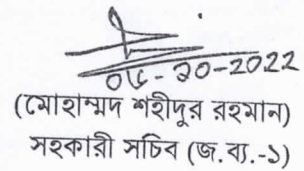 ০৬-১০-2022
(মোহাম্মদ শহীদুর রহমান)
সহকারী সচিব (জ.ব্য.-১)